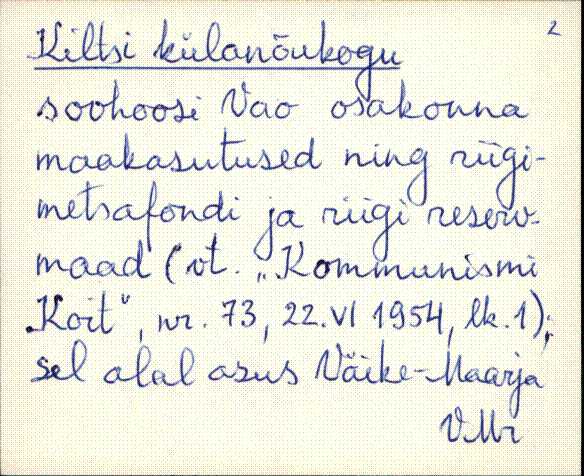 2
Kiltsi külanõukogu
soohoosi Vao osakonna
maakasutused ning riigi-
metsafondi ja riigi reserv-
maad (vt. „Kommunismi
Koit", nr. 73, 22.VI 1954, lk. 1);
sel alal asus Väike-Maarja
V.Mr